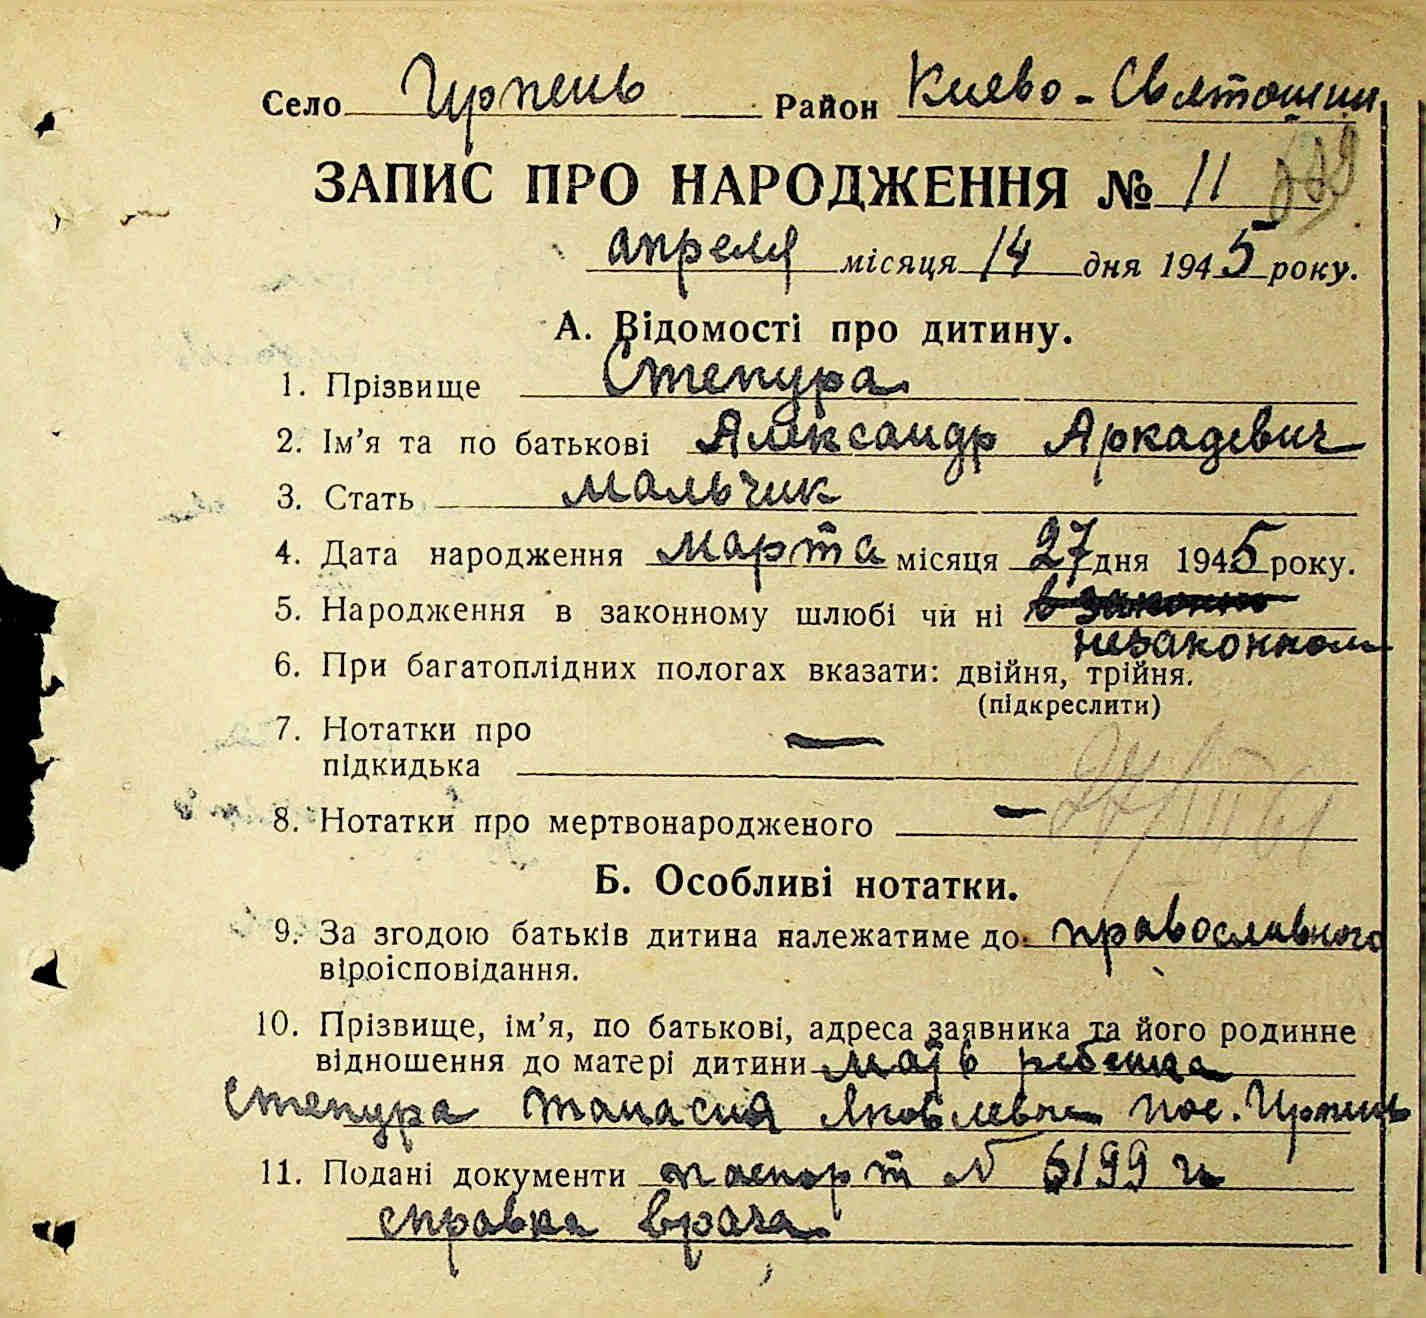 Село Ирпень Район Киево-Святошин
ЗАПИС ПРО НАРОДЖЕННЯ № 11
апреля місяця 14 дня 1945 року.
А. Відомості про дитину.
1. Прізвище Степура
2. Ім'я та по батькові Александр Аркадевич
3. Стать мальчик
4. Дата народження марта місяця 27 дня 1945 року.
5. Народження в законному шлюбі чи ні в законно
незаконном
6. При багатоплідних пологах вказати: двійня, трійня.
(підкреслити)
7. Нотатки про —
підкидька
8. Нотатки про мертвонародженого —
Б. Особливі нотатки.
9. За згодою батьків дитина належатиме до православного
віроісповідання.
10. Прізвище, ім'я, по батькові, адреса заявника та його родинне
відношення до матері дитини ребенка
Степура Яковлевна пос. Ирпень
11. Подані документи паспорт № 6199 и
справка врача